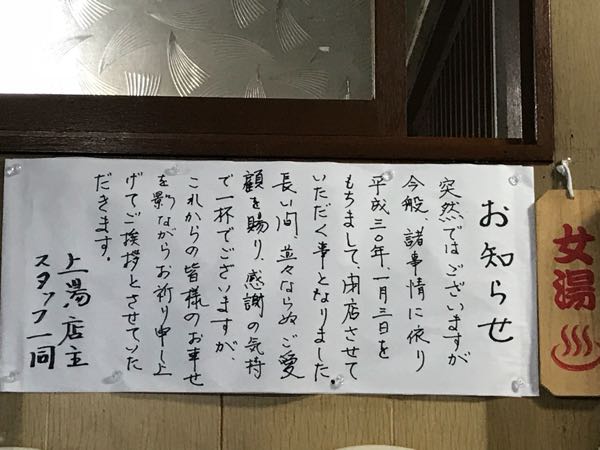 お知らせ
突然ではございますが
今般、諸事情に依り
平成三〇年、一月三日を
もちまして、閉店させて
いただく事となりました
長い間、並々ならぬご愛
顧を賜り、感謝の気持
で一杯でございますが、
これからの皆様のお幸せ
を影ながらお祈り申し上
げてご挨拶とさせていた
だきます。
上湯店主
スタッフ一同
女湯